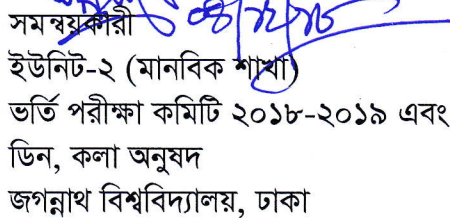 সমন্বয়কারী
ইউনিট-২ (মানবিক শাখা)
ভর্তি পরীক্ষা কমিটি ২০১৮-২০১৯ এবং
ডিন, কলা অনুষদ
জগন্নাথ বিশ্ববিদ্যালয়, ঢাকা